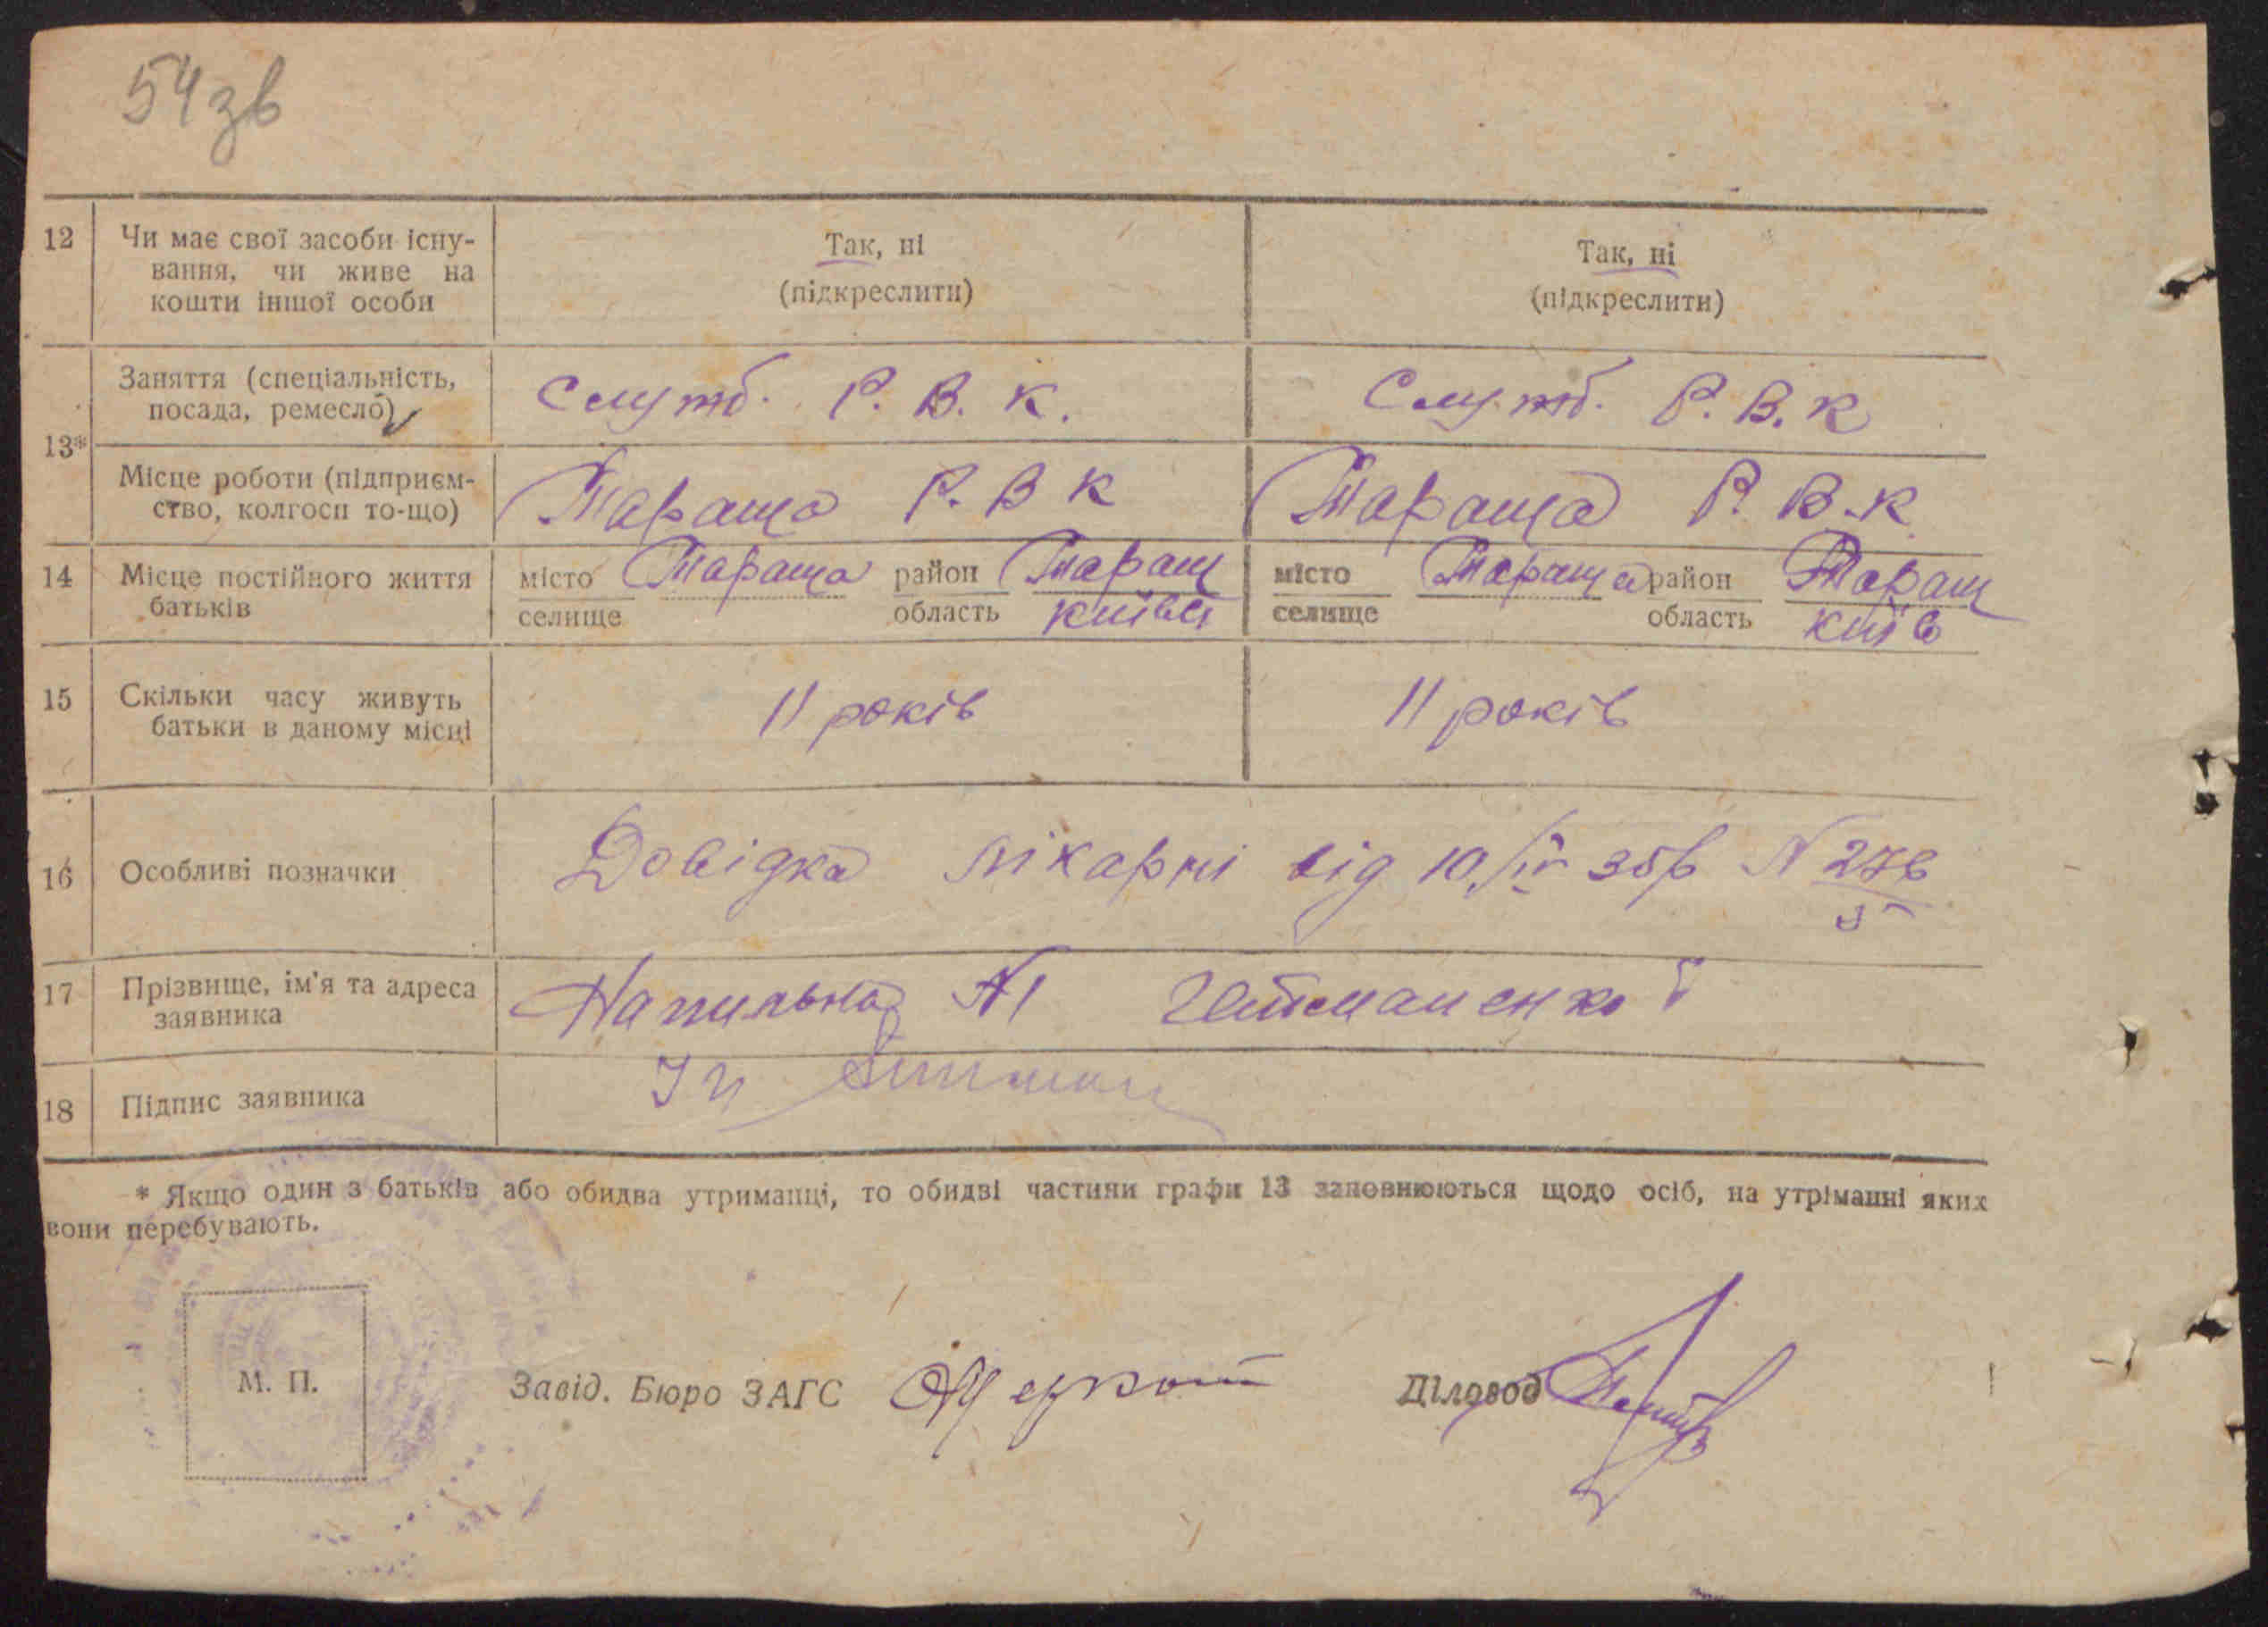 54зв
12 Чи має свої засоби існу- Так, ні Так, ні
вання, чи живе на (підкреслити) (підкреслити)
кошти іншої особи
13* Заняття (спеціальність, Служб. Р. В. К. Служб. Р. В. К
посада, ремесло)
Місце роботи (підприєм- Тараща Р. В К Тараща Р. В. К
ство, колгосп то-що)
14 Місце постійного життя місто Тараща район Таращ місто Тараща район Таращ
батьків селище область Київ селище область Київ
15 Скільки часу живуть 11 років 11 років
батьки в даному місці
16 Особливі позначки Довідка лікарні від 10/IV 35р N
17 Прізвище, ім'я та адреса
заявника
18 Підпис заявника
* Якщо один з батьків або обидва утриманці, то обидві частини графи 13 заповнюються щодо осіб, на утріманні яких
вони перебувають.
М. П. Завід. Бюро ЗАГС Діловод